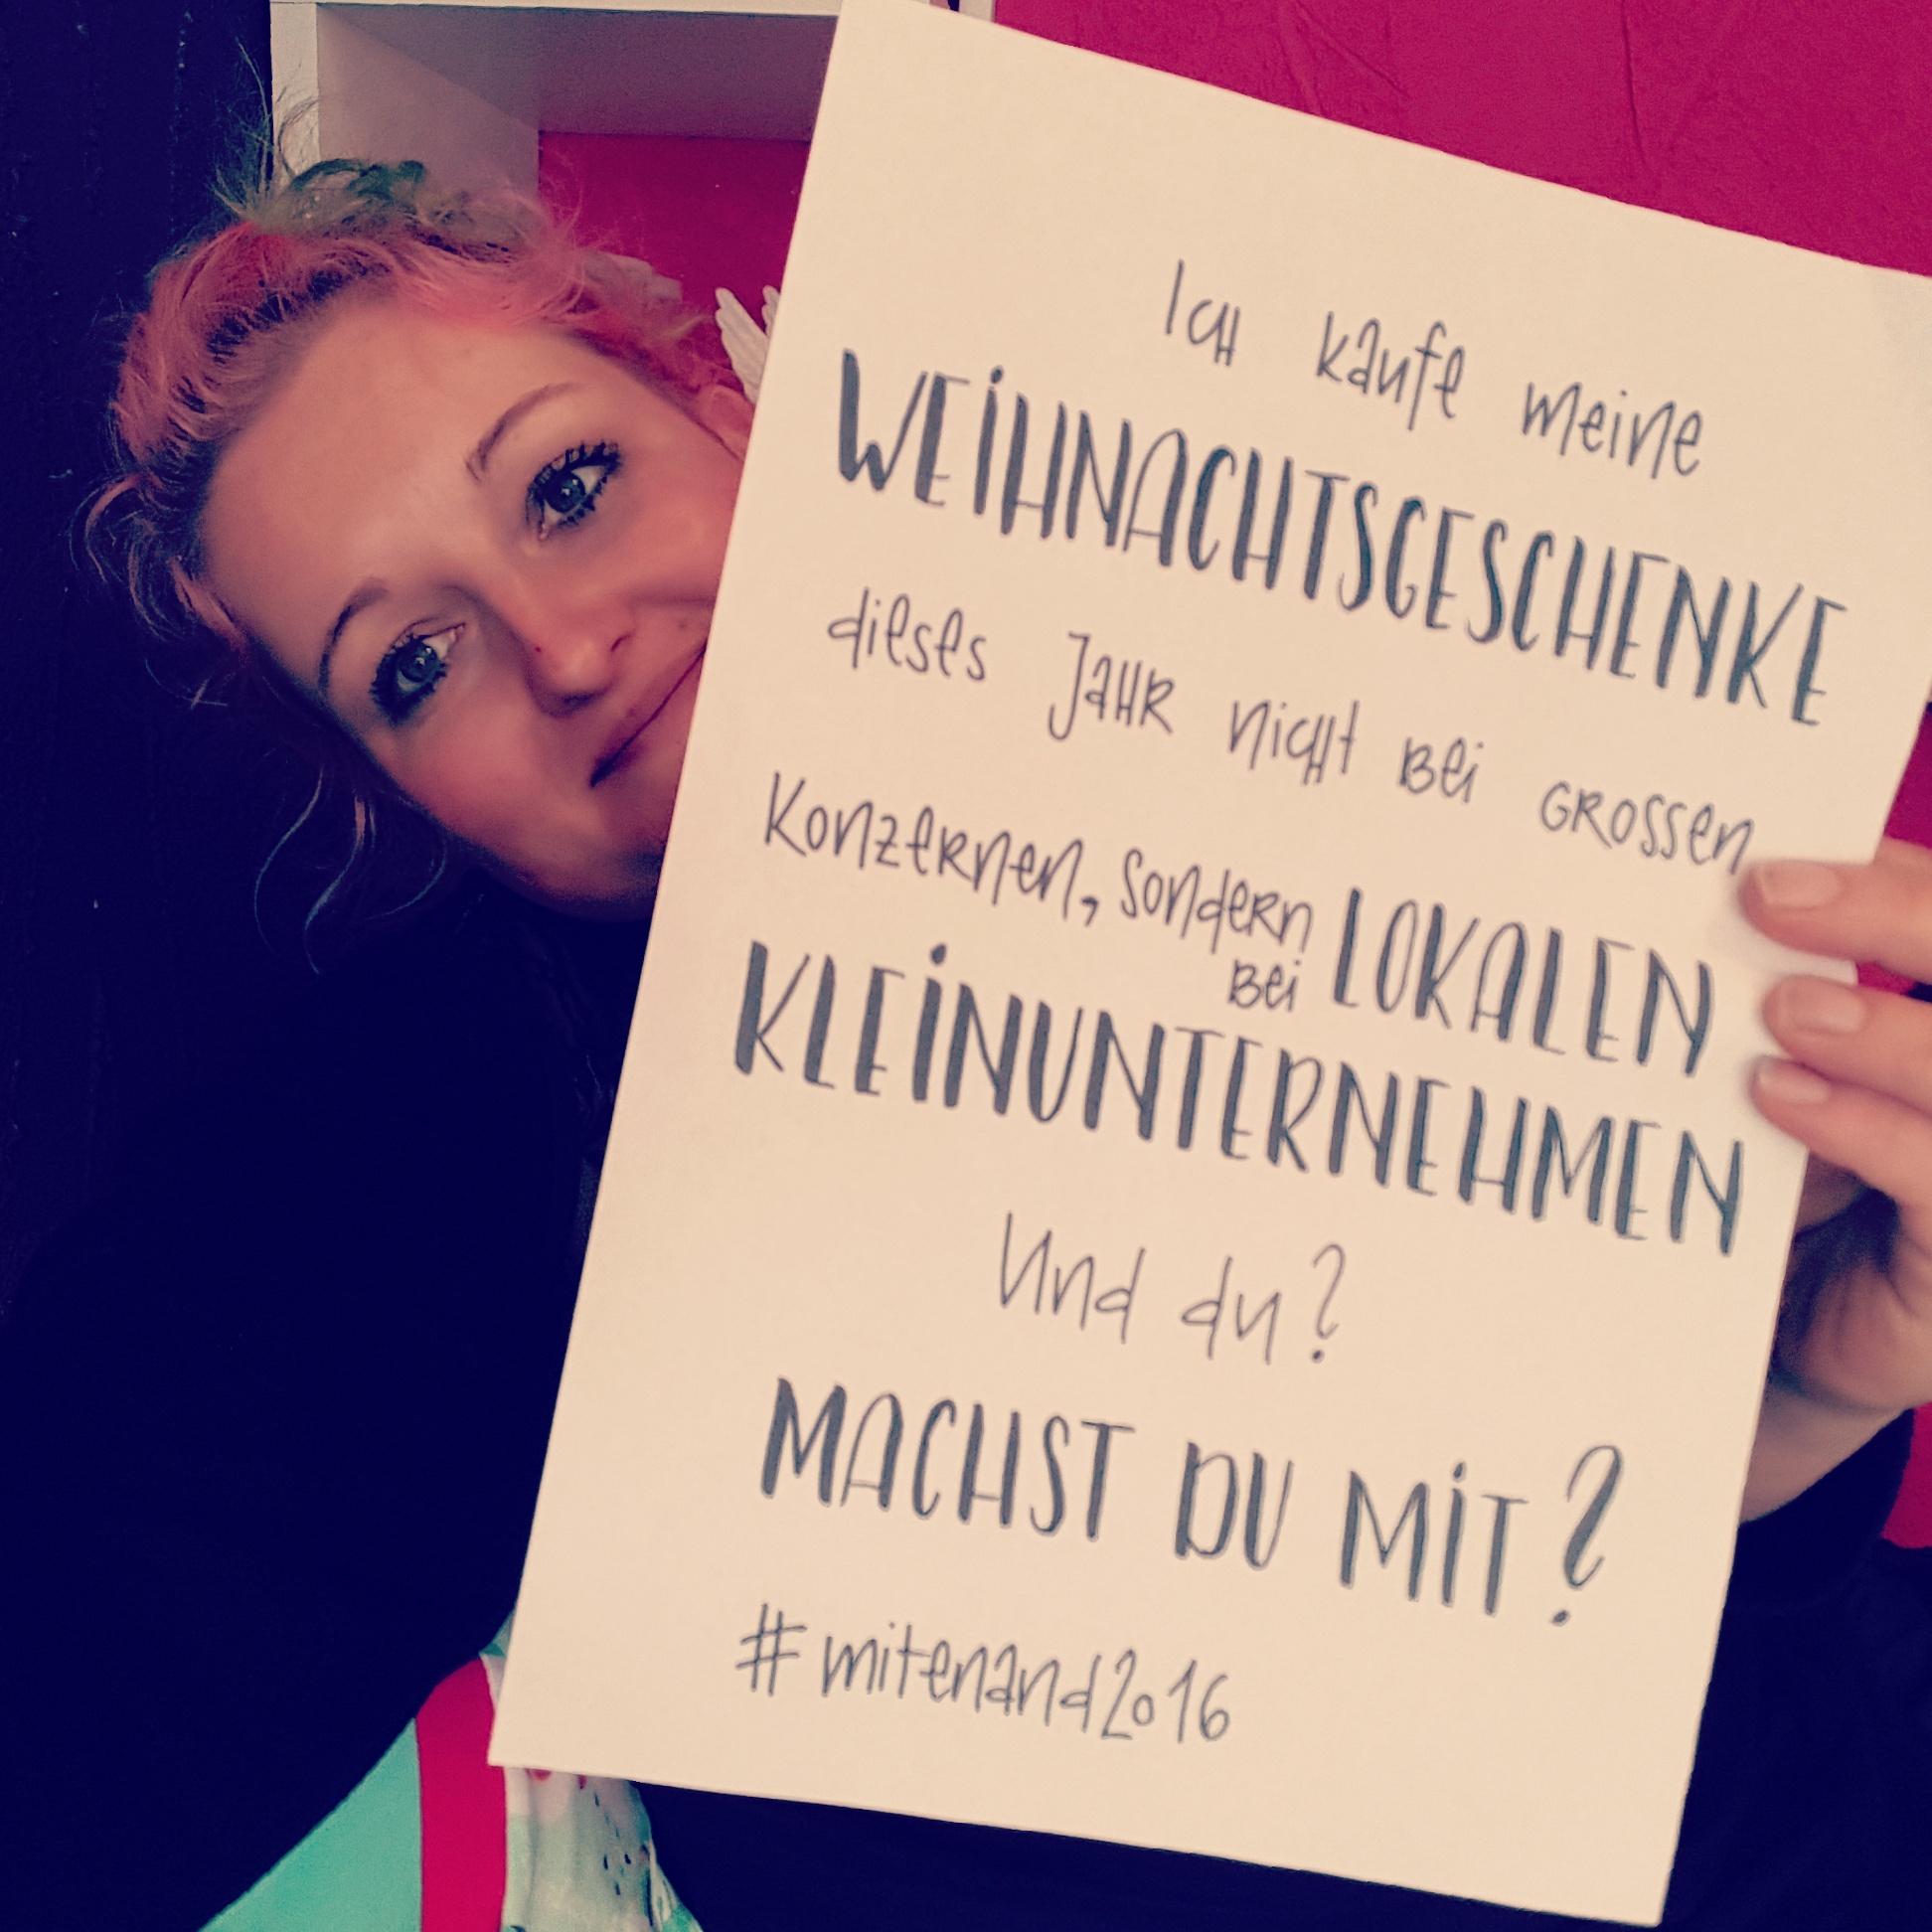 Ich kaufe meine
WEIHNACHTSGESCHENKE
dieses Jahr nicht bei grossen
Konzernen, sondern
bei LOKALEN
KLEINUNTERNEHMEN
Und du?
MACHST DU MIT?
#mitenand2016